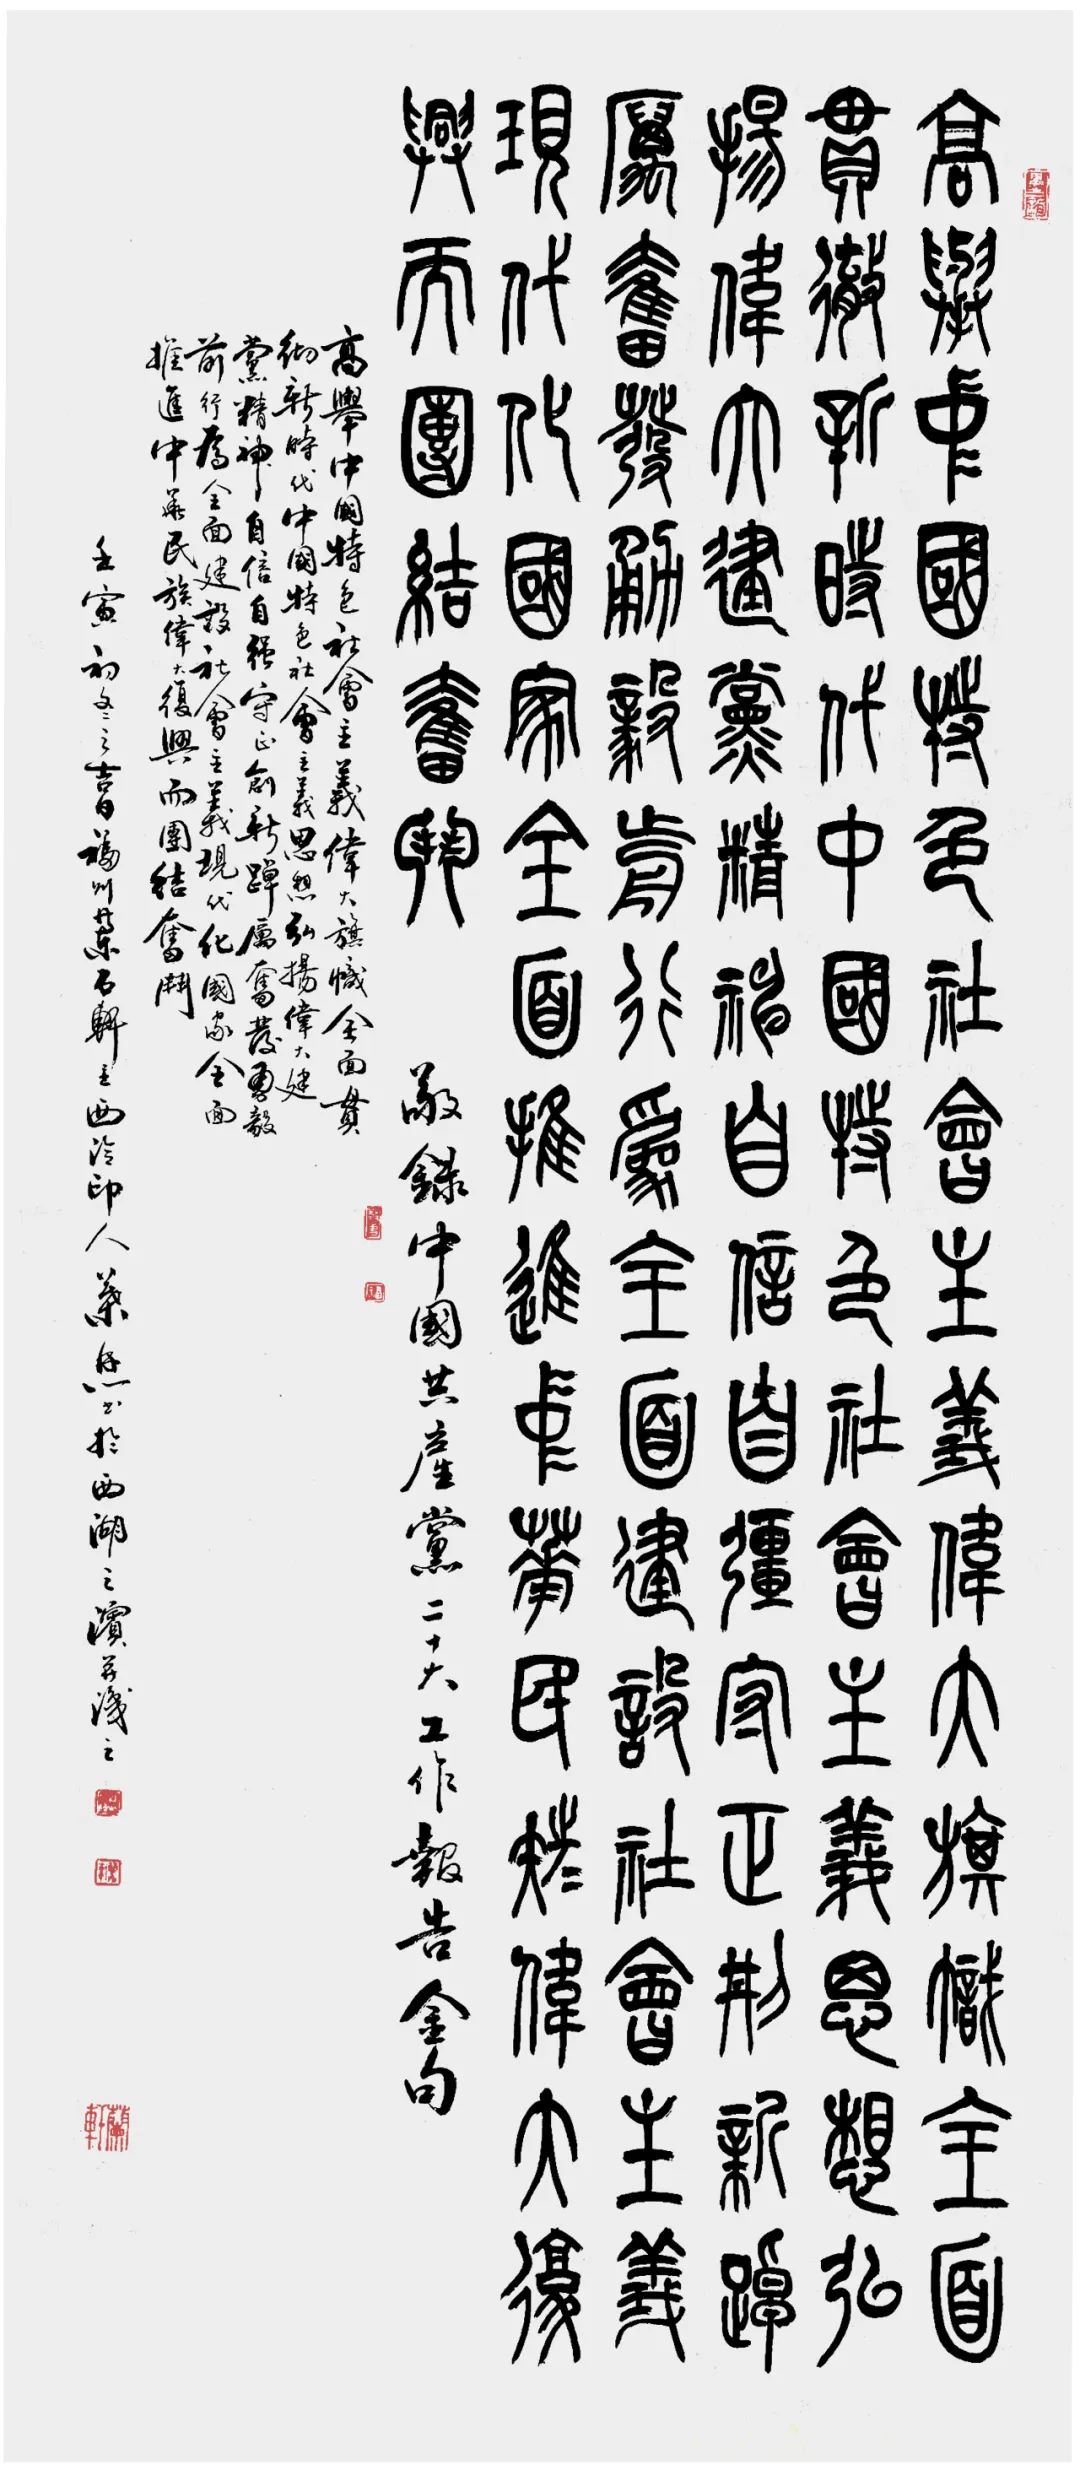 高舉中國特色社會主義偉大旗幟全面
貫徹新時代中國特色社會主義思想弘
揚偉大建黨精神自信自彊守正創新踔
厲奮發勇毅前行為全面建設社會主義
現代化國家全面推進中華民族偉大復
興而團結奮鬥
敬錄中國共產黨二十大工作報告金句
高舉中國特色社會主義偉大旗幟全面貫
徹新時代中國特色社會主義思想弘揚偉大建
黨精神自信自強守正創新踔厲奮發勇毅
前行為全面建設社會主義現代化國家全面
推進中華民族偉大復興而團結奮鬥
壬寅初冬之吉日福州葉石軒主西泠印人葉書於西湖之濱並識之
蘭軒